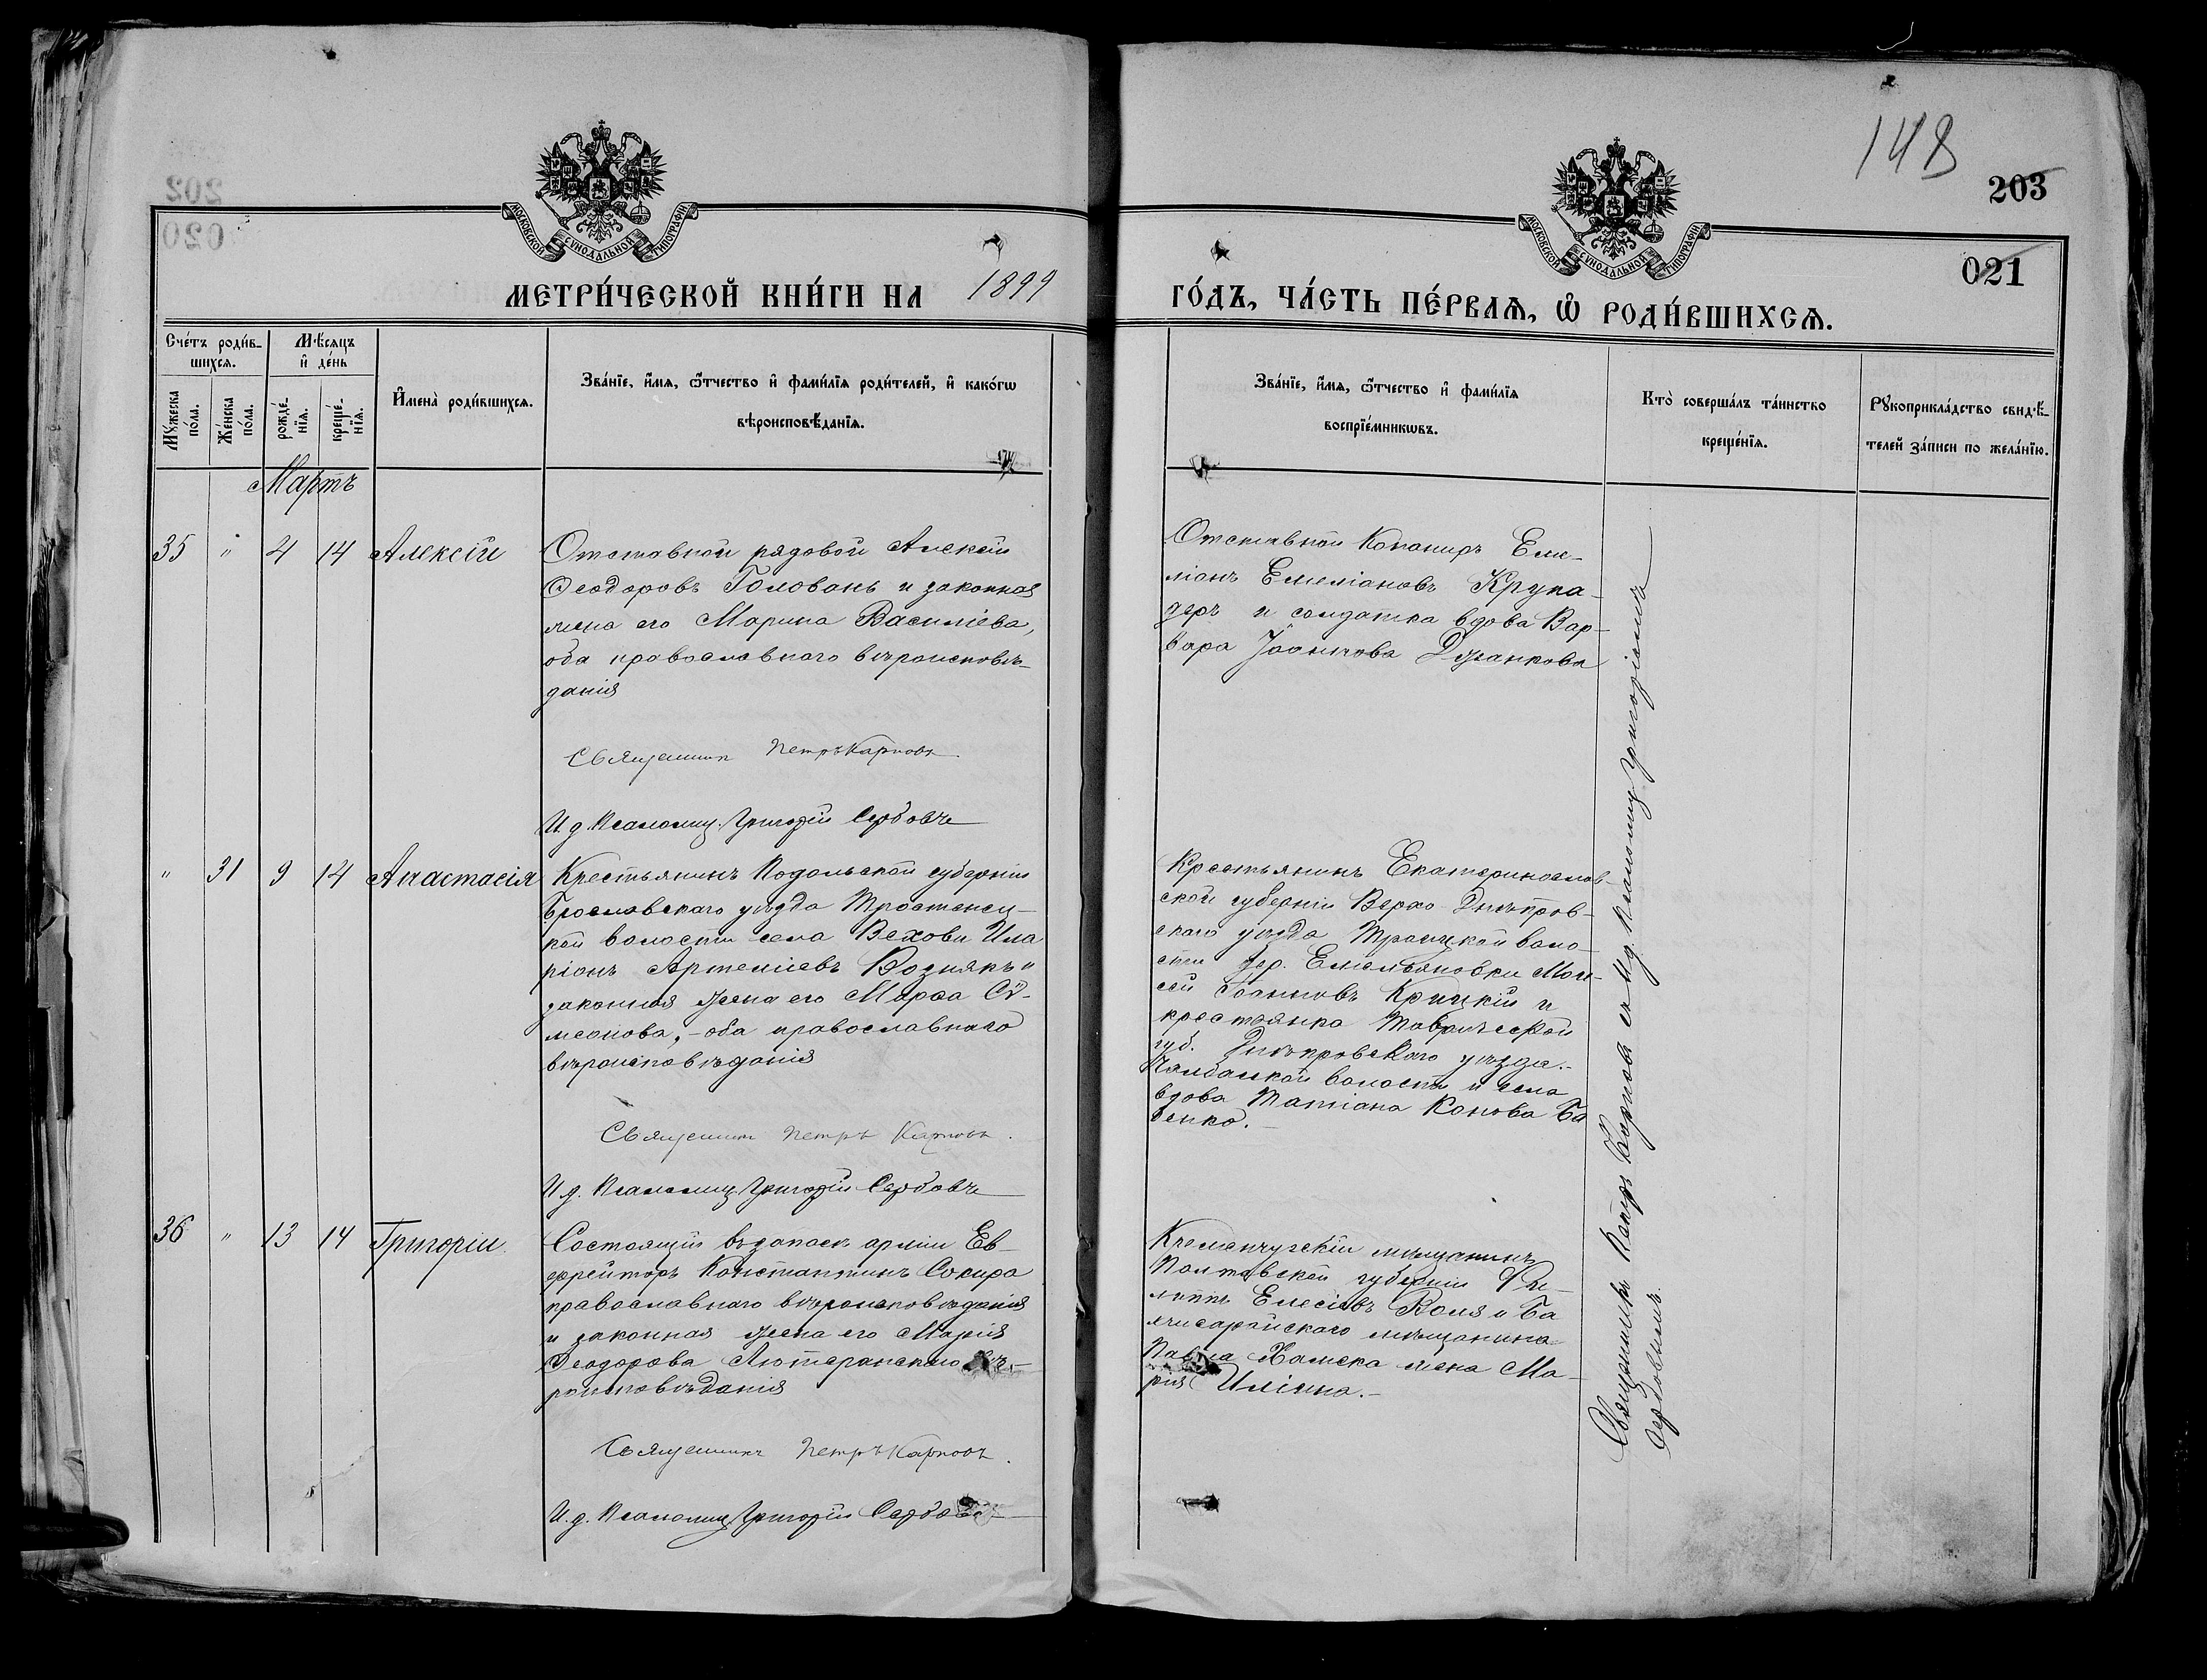 148
203
021
МОСКОВСКОЙ СѴНОДАЛЬНОЙ ТИПОГРАФІИ
МОСКОВСКОЙ СѴНОДАЛЬНОЙ ТИПОГРАФІИ
МЕТРИ́ЧЕСКОЙ КНИ́ГИ НА 1899
ГО́ДЪ, ЧА́СТЬ ПЕ́РВАѦ, Ѿ РОДИ́ВШИХСѦ.
Сче́тъ роди́в-
шихсѧ.
Мꙋ́жеска
по́ла.
Же́нска
по́ла.
Мѣ́сѧцъ
и҆ де́нь
рожде́-
нїѧ.
креще́-
нїѧ.
И҆мена̀ роди́вшихсѧ.
Зва́нїе, и҆́мѧ, ѻ҆́тчество и҆ фами́лїѧ роди́телей, и҆ како́гѡ
вѣроисповѣ́данїѧ.
Зва́нїе, и҆́мѧ, ѻ҆́тчество и҆ фами́лїѧ
воспрїе́мникѡвъ.
Кто̀ соверша́лъ та́инство
креще́нїѧ.
Рꙋкоприкла́дство свидѣ́-
телей за́писи по жела́нїю.
Мартъ
35 " 4 14 Алексій
Отставной рядовой Алексій
Ѳеодоровъ Головань и законная
жена его Марина Василіева,
оба православнаго вѣроисповѣ-
данія
Священникъ Петръ Карповъ.
И. д. Псаломщ. Григорій Сербовъ
Отставной Канониръ Еми-
ліанъ Емиліановъ Крупа-
деръ и солдатка вдова Вар-
вара Іоаннова Джанкова
" 31 9 14 Анастасія
Крестьянинъ Подольской губерніи
Брославскаго уѣзда Тростенец-
кой волости села Вехови Ила
ріонъ Артеміевъ Вознякъ и
законная жена его Марѳа Сѵ-
меонова, - оба православнаго
вѣроисповѣданія
Священникъ Петръ Карповъ.
И. д. Псаломщ. Григорій Сербовъ
Крестьянинъ Екатеринослав-
ской губерніи Верхо Днѣпров-
скаго уѣзда Троицкой воло-
сти дер. Емельяновки Мои-
сей Іоанновъ Крицкій и
крестьянка Таврической
губ. Днѣпровскаго уѣзда.-
Чалбаской волости и села
вдова Татіана Конова Ба
бенко.-
36 " 13 14 Григорій.
Состоящій въ запасѣ арміи Еф-
рейторъ Константинъ Сокира
православнаго вѣроисповѣданія
и законная жена его Марія
Ѳеодорова Лютеранскаго вѣ-
роисповѣданія
Священникъ Петръ Карповъ.
И. д. Псаломщ. Григорій Сербовъ
Кременчугскій мѣщанинъ
Полтавской губерніи Фи-
липпъ Елесіевъ Воля и Ба
хчисарайскаго мѣщанина
Павла Хамска жена Ма-
рія Иліина.-
Священникъ Петръ Карповъ съ И.д. Псаломщ. Григоріемъ
Сербовымъ.